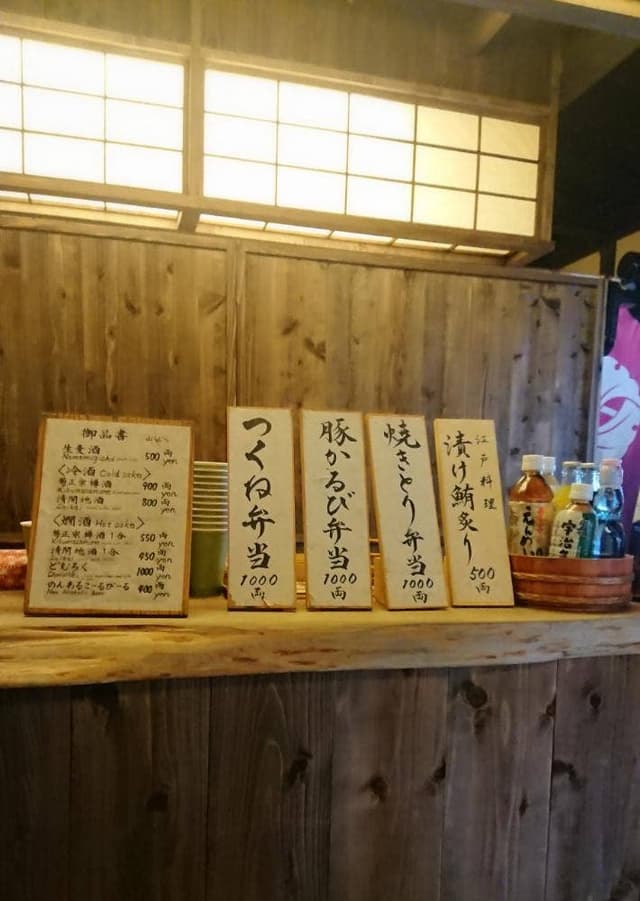 御品書
生麦酒 500両
Namabiiru yen
〈冷酒 Cold sake〉
菊正宗樽酒 900両
yen
清開地酒 800両
yen
〈燗酒 Hot sake〉
菊正宗樽酒1合 550両
yen
清開地酒1合 950両
yen
どぶろく 1000両
yen
のんあるこーるびーる 400両
Non Alcoholic Beer yen
つくね弁当
1000
両
豚かるび弁当
1000
両
焼きとり弁当
1000
両
江戸料理
漬け鮪炙り
500
両